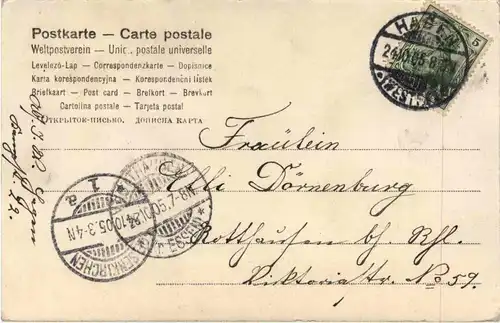 Postkarte — Carte postale
Weltpostverein — Union postale universelle
Levelező-Lap — Correspondenzkarte — Dopisnice
Karta korespondencyjna — Korespondenční lístek
Briefkaart — Post card — Brefkort — Brevkort
Cartolina postale — Tarjeta postal
ОТКРЫТОЕ-ПИСЬМО. ДОПИСНА КАРТА
HAGEN
5
Fräulein
Elli Dörnenburg
Rotthausen bh. Rhl.
Viktoriastr. No 59.
ROTTHAUSEN
(ESSEN)
24.10.05. 7-8N
GELSENKIRCHEN
24.10.05. 3-4N
1
a